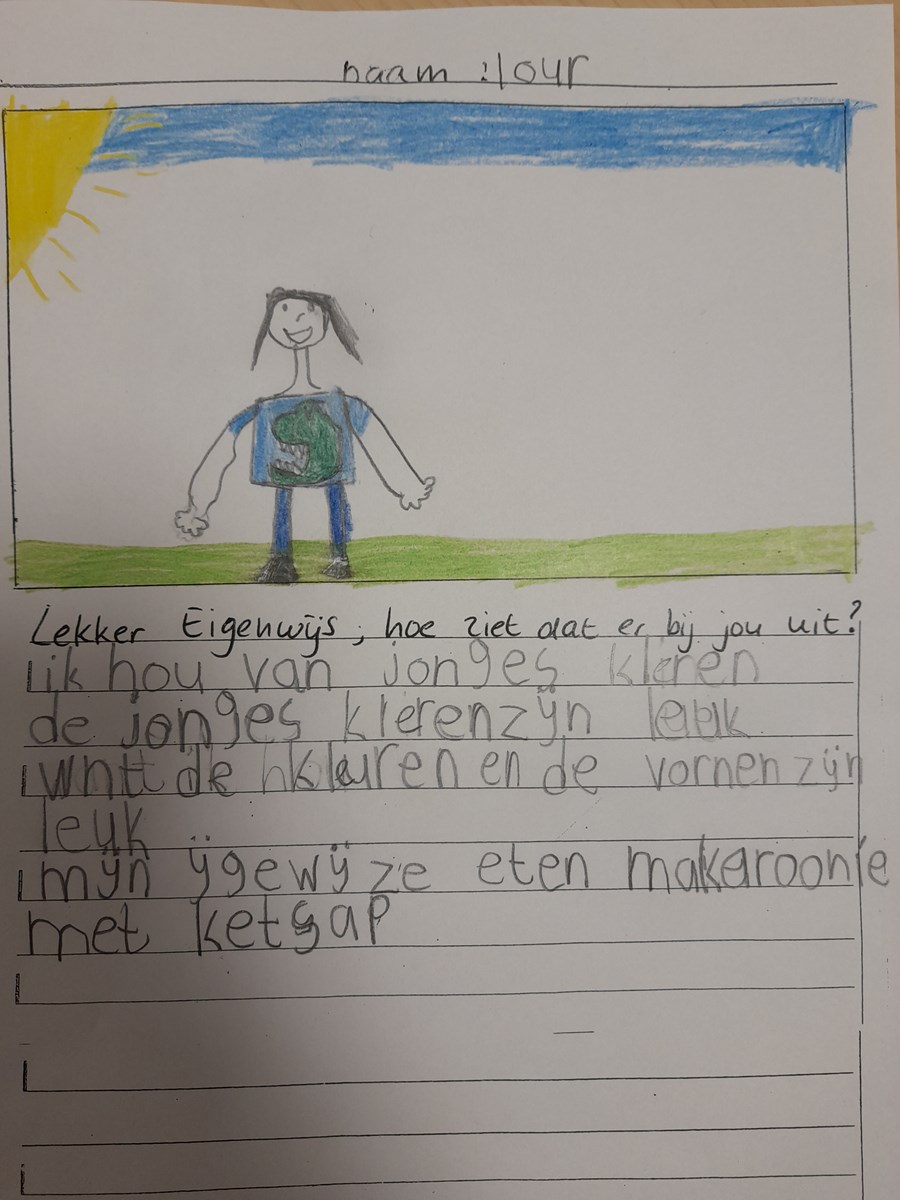 naam : lour
Lekker Eigenwijs, hoe ziet dat er bij jou uit?
ik hou van jonges kleren
de jonges klerenzijn leuk
wntt de kleuren en de vornen zijn
leuk
mijn ijgewijze eten makaroonie
met ketsap